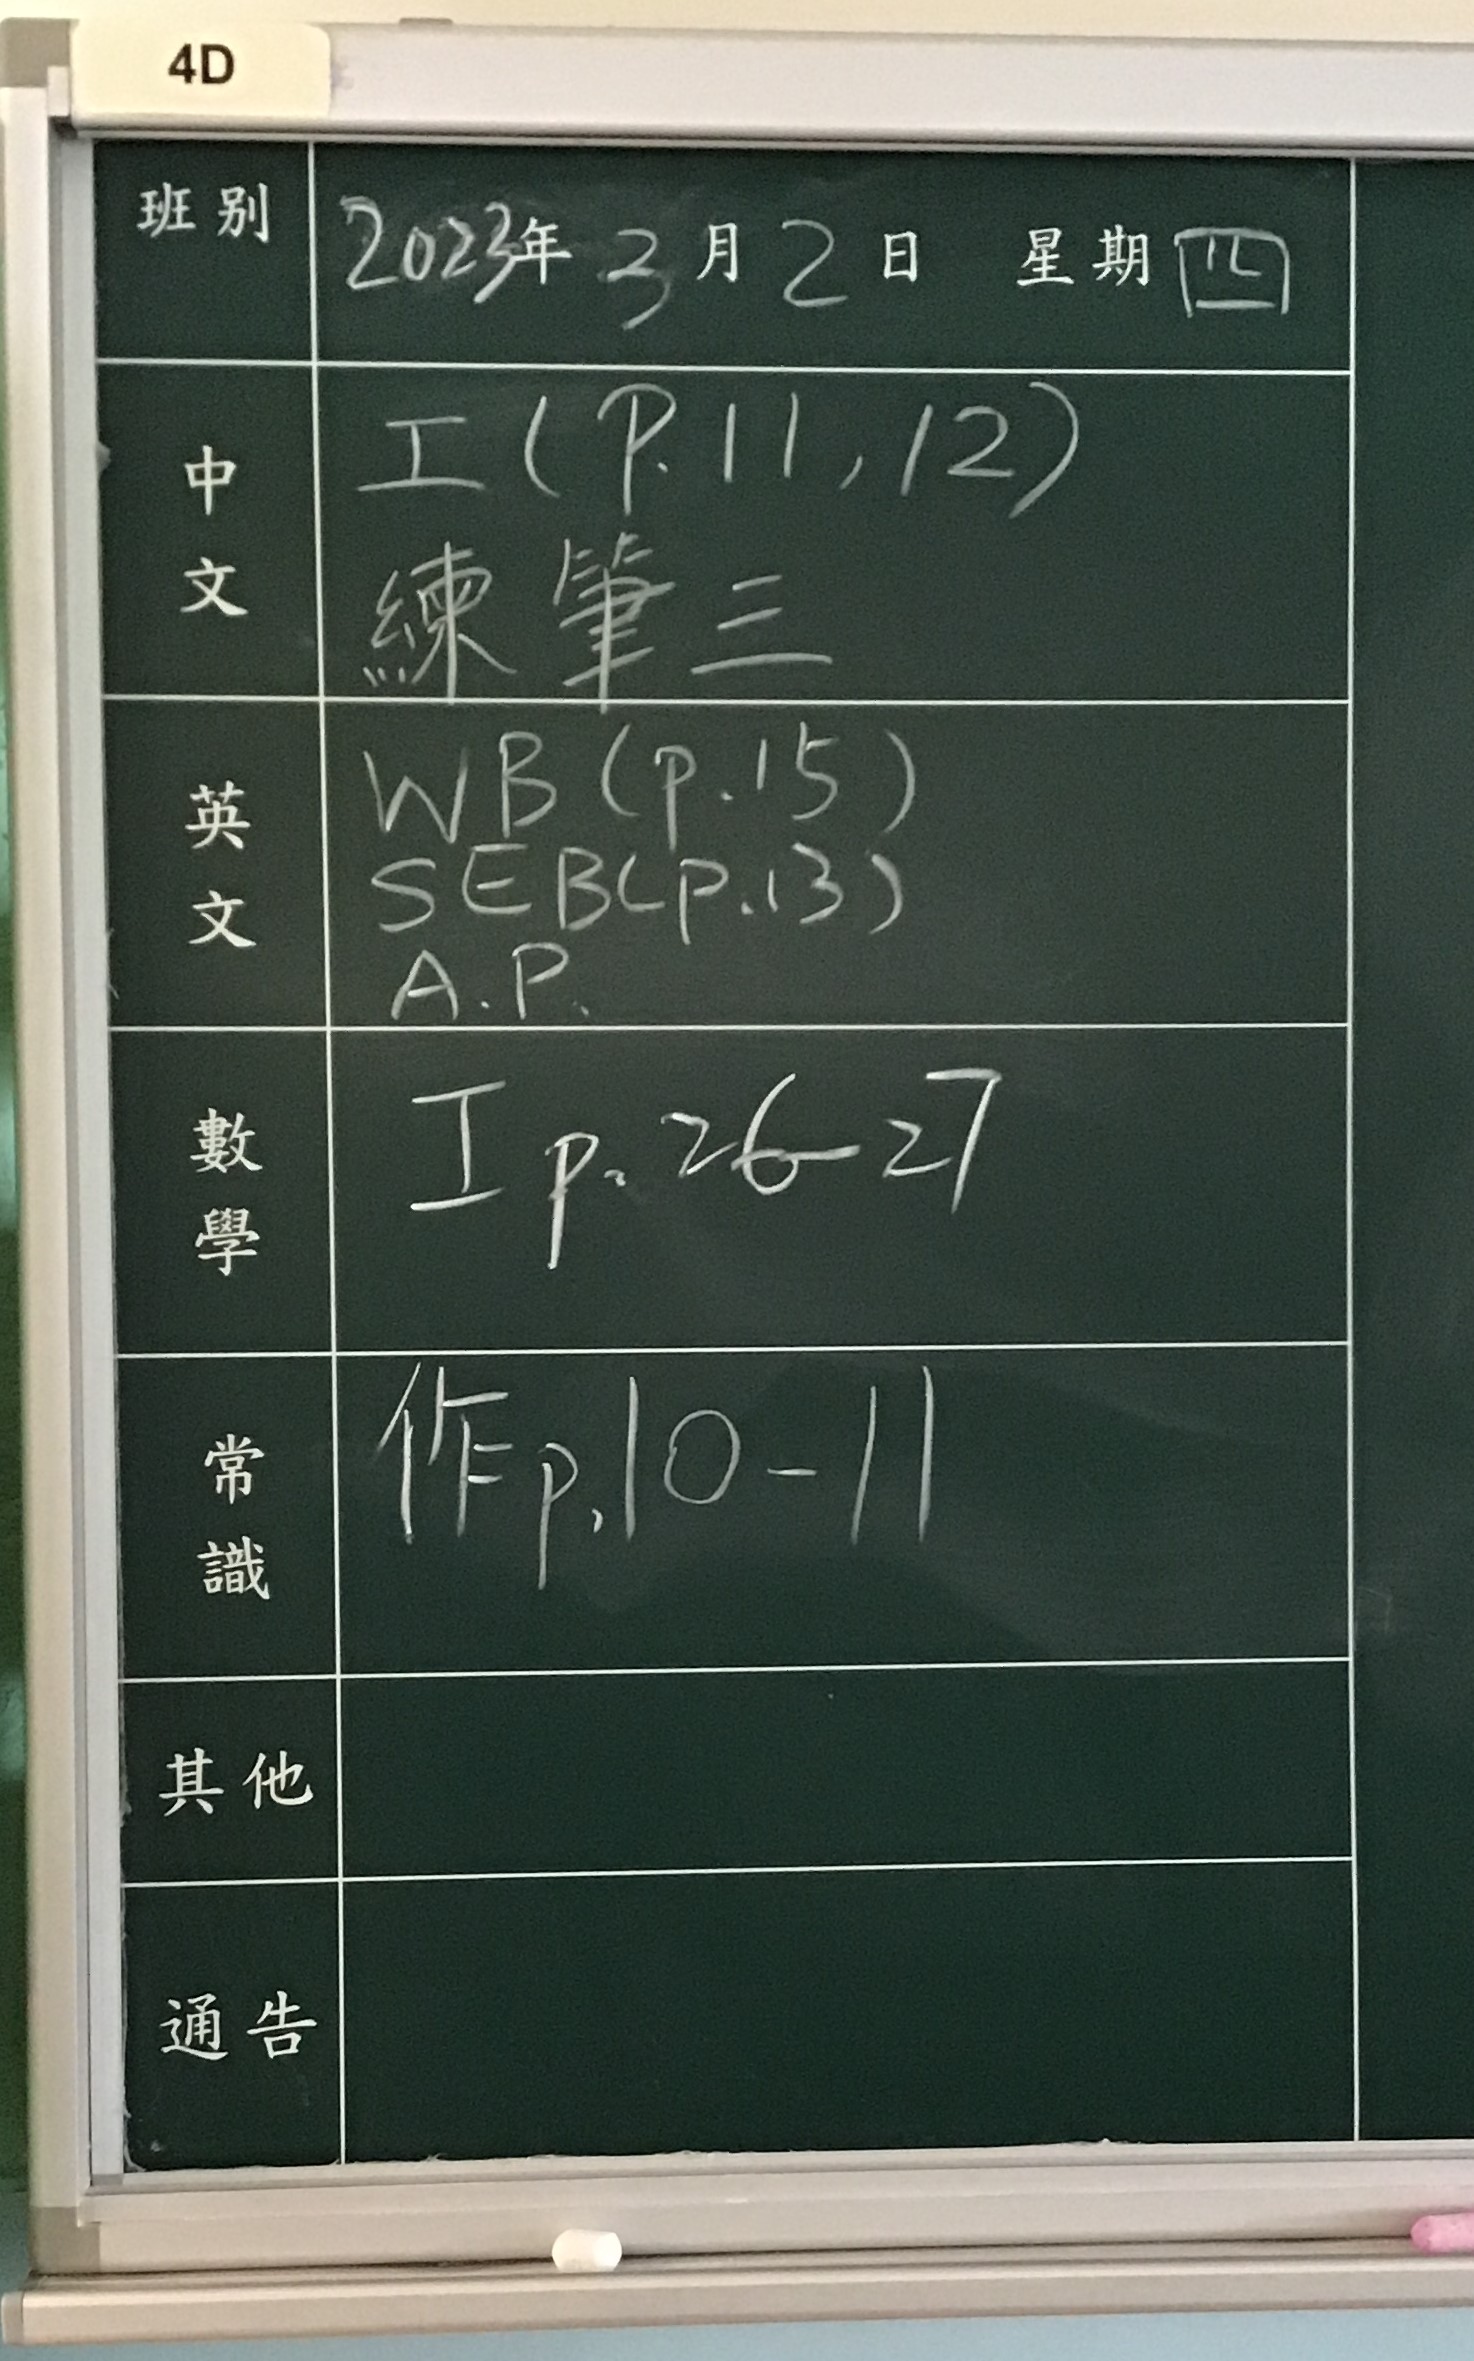 4D
班別
2023年3月2日 星期四
中文
工(P.11,12)
練筆三
英文
WB(p.15)
SEB(p.13)
A.P.
數學
工p.26-27
常識
作p.10-11
其他
通告